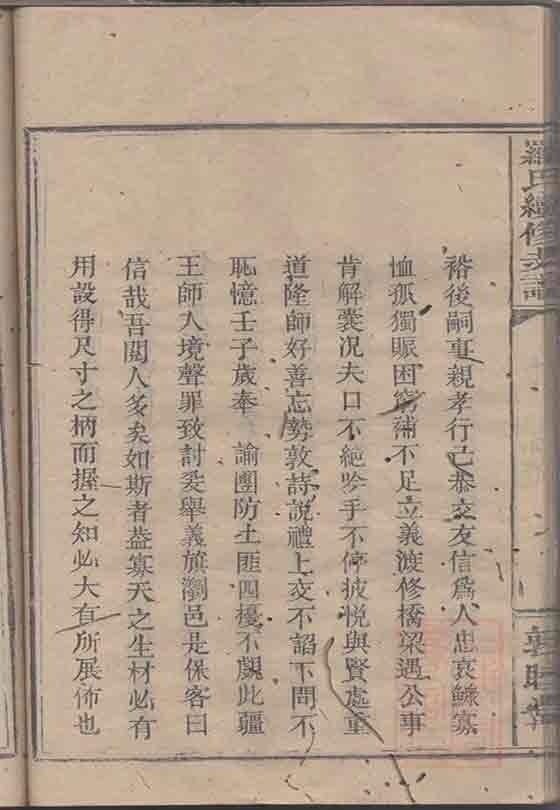 羅氏續修支譜
裕後嗣事親孝行己恭交友信爲人忠哀鰥寡
恤孤獨賑困窮補不足立義渡修橋梁遇公事
肯解囊况夫口不絶吟手不停披悅與賢處重
道隆師好善忘勢敦詩說禮上交不諂下問不
恥憶壬子歲奉 諭團防土匪四擾不靚此疆
王師入境聲罪致討爰舉義旗瀏邑是保客曰
信哉吾閱人多矣如斯者葢寡天之生材必有
用設得尺寸之柄而握之知必大有所展佈也